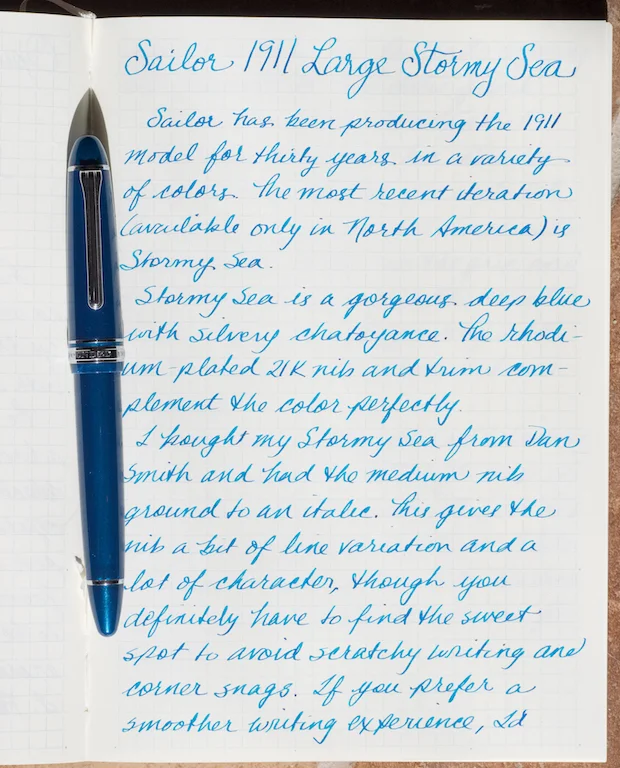 Sailor 1911 Large Stormy Sea
Sailor has been producing the 1911
model for thirty years in a variety
of colors. The most recent iteration
(available only in North America) is
Stormy Sea.
Stormy Sea is a gorgeous deep blue
with silvery chatoyance. The rhodi-
um-plated 21K nib and trim com-
plement the color perfectly.
I bought my Stormy Sea from Dan
Smith and had the medium nib
ground to an italic. This gives the
nib a bit of line variation and a
lot of character, though you
definitely have to find the sweet
spot to avoid scratchy writing and
corner snags. If you prefer a
smoother writing experience, I'd